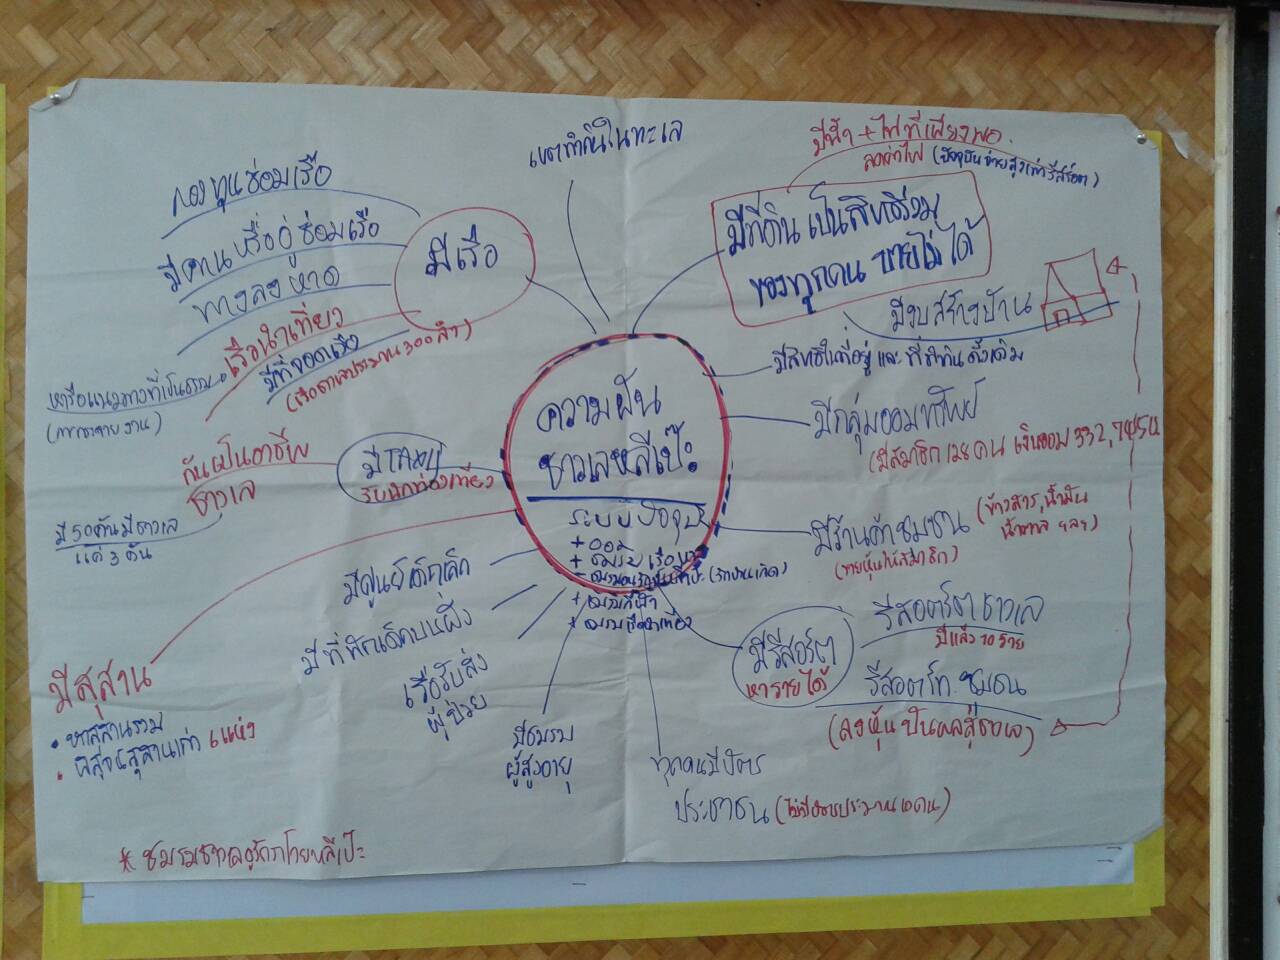 เขตทำกินในทะเล
มีน้ำ + ไฟที่เพียงพอ
ลดค่าไฟ (ปัจจุบันจ่ายสูงเท่ารีสอร์ต)
มีที่ดิน เป็นสิทธิร่วม
ของทุกคน ขายไม่ได้
มีงบสร้างบ้าน
มีสิทธิในที่อยู่ และ ที่ดินดั้งเดิม
มีกลุ่มออมทรัพย์
(มีสมาชิก คน เงินออม
มีร้านค้าชุมชน (ข้าวสาร, น้ำมัน
น้ำตาล ฯลฯ)
(ขายหุ้นให้สมาชิก)
มีรีสอร์ต
หารายได้
รีสอร์ตชาวเล
มีแล้ว 10 ราย
รีสอร์ท ชุมชน
(ลงหุ้น ปันผลสู่ชาวเล)
ทุกคนมีบัตร
ประชาชน
มีชมรม
ผู้สูงอายุ
เรือรับส่ง
ผู้ป่วย
มีที่พักเด็กบนฝั่ง
มีศูนย์เด็กเล็ก
มีสุสาน
พิสูจน์สุสานเก่า แห่ง
มี TAXI
รับนักท่องเที่ยว
กันเป็นอาชีพ
ชาวเล
มี 50 คัน มีชาวเล
แค่ 3 คัน
มีเรือ
กองทุนซ่อมเรือ
มีคานหรืออู่ซ่อมเรือ
ทางลงหาด
เรือนำเที่ยว
หารือแนวทางที่เป็นธรรม
มีที่จอดเรือ
(เรือชาวเลประมาณ 300 ลำ)
ความฝัน
ชาวเลหลีเป๊ะ
ระบบปัจจุบัน
+ ออม
* ชมรมชาวเลอูรักลาโว้ยหลีเป๊ะ